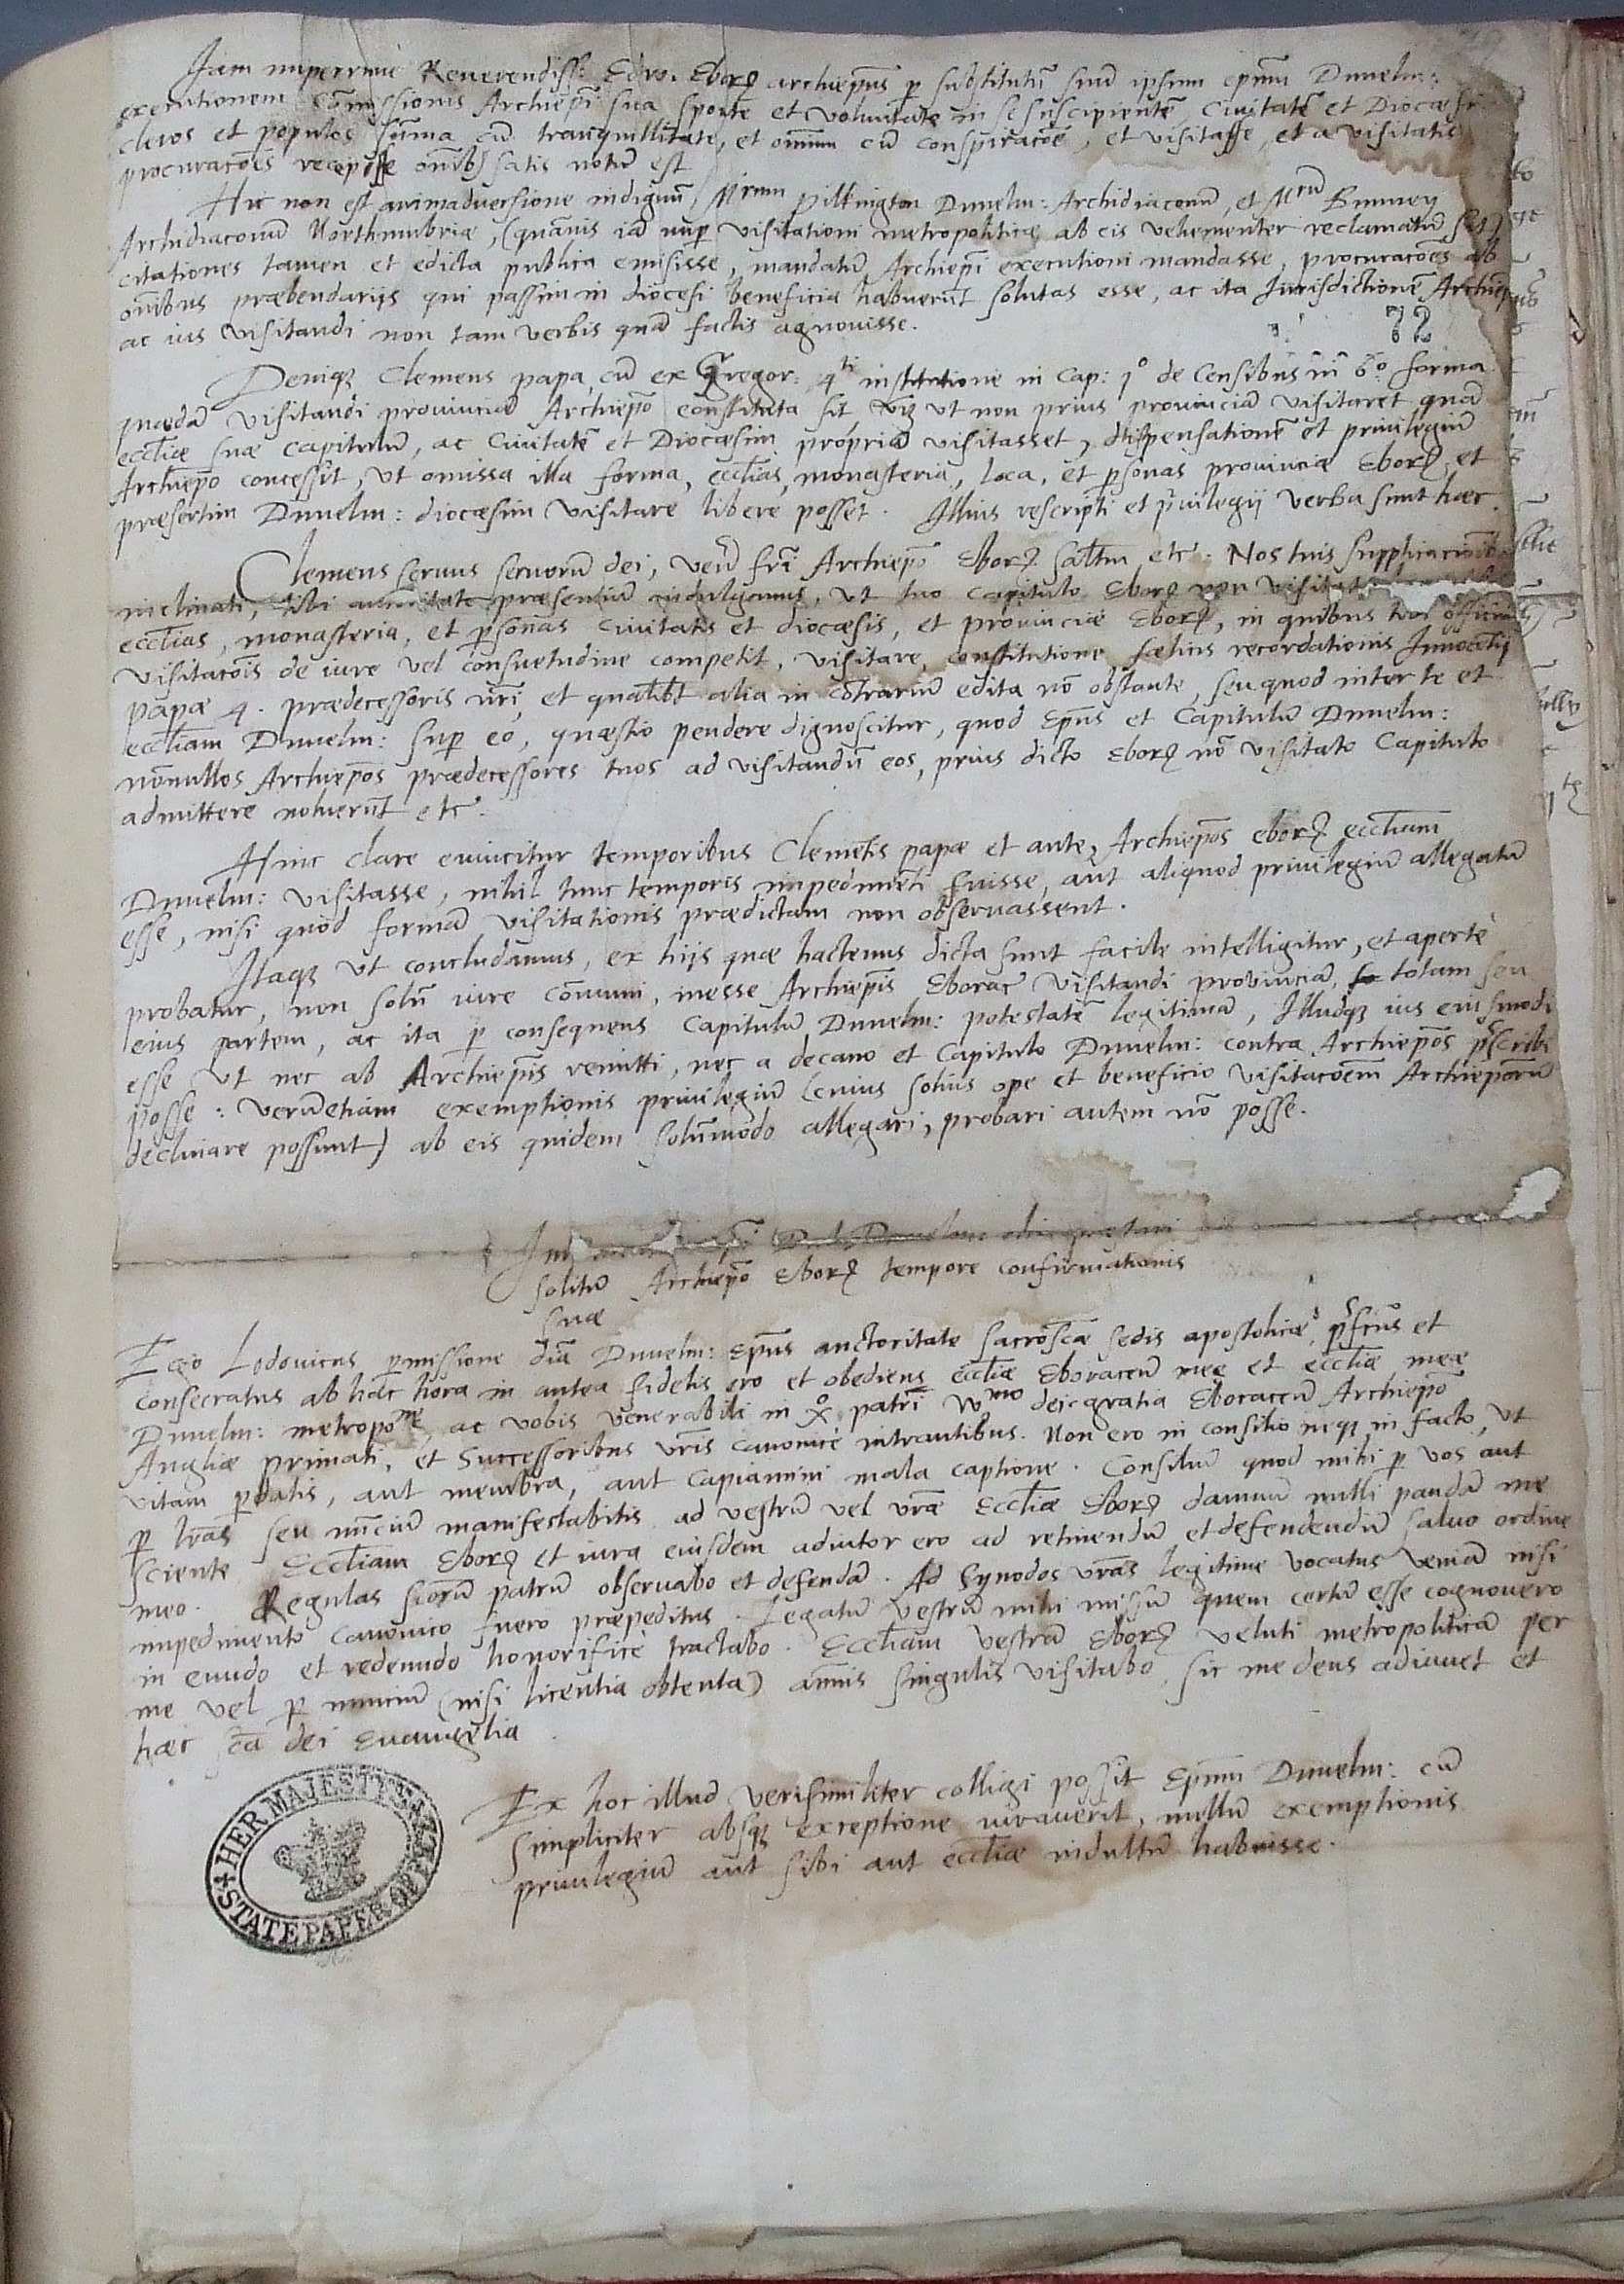 Iam nuperrimè Reverendiss: Edw. Eborꝝ archiepũs ꝑ substitutũ suũ ipsum epũm Dunelm:
executionem cõmissionis Archiepĩ sua sponte et voluntate in se suscipientẽ, Civitatẽ et Diocæsi
cleros et populos sũma cũ tranquillitate, et omniũ cũ conspiracõe, et visitasse, et a visitatis
procuracões recepisse omĩbꝫ satis notũ est
Hic non est animadversione indignũ, Mrum Pilkington Dunelm: Archidiaconũ, et Mrũ Bunney
Archidiaconũ Northumbriæ, (quãvis iã nuꝑ visitationi metropoliticæ ab eis vehementer reclamatũ sit)
citationes tamen et edicta publica emisisse, mandatũ Archiepĩ executioni mandasse, procuracões ab
omĩbus præbendarijs qui passim in diocesi beneficia habuerũt solutas esse, ac ita Iurisdictionẽ Archiepĩ
ac ius visitandi non tam verbis quã factis agnovisse.
72
Deniqꝫ Clemens papa cũ ex Gregor: 4ti institutione in Cap: 1o de Censibus in 6o forma
quædã visitandi provinciã Archiepõ constituta sit viꝫ ut non prius provinciã visitaret quã
eccliæ suæ capitulũ, ac Civitatẽ et Diocæsim propriã visitasset, dispensationẽ et privilegiũ
Archiepõ concessit, ut omissa illa forma, ecclias, monasteria, loca, et ꝑsonas provinciæ Eborꝝ, et
præsertim Dunelm: diocæsim visitare libere posset. Illius rescripti et p̃vilegij verba sunt hæc.
Clemens servus servorũ dei, veñ frĩ Archiepõ Eborꝝ saltm etc. Nos tuis supplicacõibus
inclinati, tibi auctoritate præsentiũ indulgemus, ut tuo capitulo Eborꝝ non visitato
ecclias, monasteria, et ꝑsonas civitatis et diocæsis, et provinciæ Eborꝝ, in quibus tuæ officium
visitacõis de iure vel consuetudine competit, visitare, constitutione fœlicis recordationis Innocẽtij
papæ 4. prædecessoris nrĩ, et qualibt alia in cõtrariũ edita nõ obstante, seu quod inter te et
eccliam Dunelm: suꝑ eo, quæstio pendere dignoscitur, quod Epũs et Capitulũ Dunelm:
nõnullos Archiepõs prædecessores tuos ad visitandũ eos, prius dicto Eborꝝ nõ visitato Capitulo
admittere noluerũt etc.
Hinc clare evincitur temporibus Clemẽtis papæ et ante, Archiepõs eborꝝ eccliam
Dunelm: visitasse, nihil tunc temporis impedimẽti fuisse, aut aliquod privilegiũ allegatũ
esse, nisi quod formã visitationis prædictam non observassent.
Itaqꝫ ut concludamus, ex hijs quæ hactenus dicta sunt facile intelligitur, et apertè
probatur, non solũ iure cõmuni, inesse Archiepĩs Eborac visitandi provinciã, totam seu
eius partem, ac ita ꝑ consequens Capitulũ Dunelm: potestatẽ legitimã, Illudqꝫ ius eiusmodi
esse ut nec ab Archiepĩs remitti, nec a decano et Capitulo Dunelm: contra Archiepõs p̃scribi
posse: verũetiam exemptionis privilegiũ (cuius solius ope et beneficio visitacõem Archiepõrũ
declinare possunt) ab eis quidem solũmodo allegari, probari autem nõ posse.
Dunelm: olim præstari
solitũ Archiepõ Eborꝝ tempore confirmationis
suæ
Ego Lodovicus ꝑmissione diã Dunelm: Epũs auctoritate sacrosc̃æ sedis apostolicæ, p̃fc̃us et
consecratus ab hac hora in antea fidelis ero et obediens eccliæ Eboraceñ meæ et eccliæ meæ
Dunelm: metropone, ac vobis venerabili in Xo patrĩ Wmo dei gratia Eboraceñ Archiepõ
Angliæ primati, et Successoribus vrĩs canonicè intrantibus. Non ero in consilio neqꝫ in facto, ut
vitam ꝑdatis, aut membra, aut capiamini mala captione. Consiliũ quod mihi ꝑ vos aut
ꝑ lrãs seu nũciũ manifestabitis ad vestrũ vel vrãe Eccliæ Eborꝝ damnũ nulli pandã me
sciente. Eccliam Eborꝝ et iura eiusdem adiutor ero ad retinendũ et defendendũ salvo ordine
meo. Regulas sc̃orũ patrũ observabo et defendã. Ad Synodos vrãs legitime vocatus veniã nisi
impedimento canonico fuero præpeditus. Legatũ vestrũ mihi missũ quem certũ esse cognovero
in eundo et redeundo honorificè tractabo. Eccliam vestrã Eborꝝ veluti metropoliticã per
me vel ꝑ nunciũ (nisi licentia obtenta) annis singulis visitabo, sic me deus adiuvet et
hæc sc̃a dei Evangelia.
Ex hoc illud verisimiliter colligi possit Epũm Dunelm: cũ
simpliciter absqꝫ exceptione iuraverit, nullũ exemptionis
privilegiũ aut sibi aut eccliæ indultũ habuisse.
HER MAJESTY'S STATE PAPER OFFICE